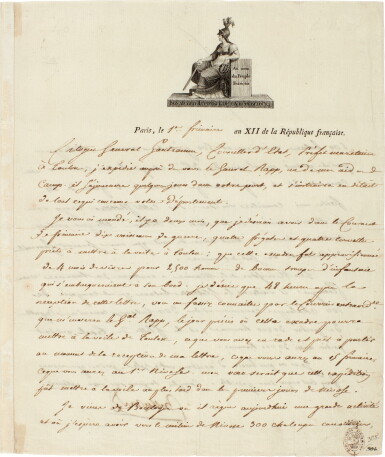 Au nom
du Peuple
français
Paris, le 1er frimaire an XII de la République française.
Citoyen General Ganteaume Conseiller d'Etat, Préfet maritime
à Toulon, j'expédie auprès de vous le General Rapp, un de mes aid- de
Camp. Il séjournera quelques jours dans votre port, et s'instruira en détail
de tout ce qui concerne votre département.
Je vous ai mandé, il y a deux mois, que je désirais avoir dans le Courant
de frimaire dix vaisseaux de guerre, quatre frégates et quatre corvettes
prêts à mettre à la voile à Toulon; que cette escadre fut approvisionnée
de 4 mois de vivres pour 2,500 hommes de Bonnes troupes d'infanterie
qui s'embarqueraient à son bord. je désire que 48 heures après la
réception de cette lettre, vous me fassiez connaître par le Courrier extraordre
que m'enverra le Gal Rapp, le jour précis où cette escadre pourra
mettre à la voile de Toulon, ce que vous avez en rade et prêt à partir
au moment de la réception de ma lettre, ce que vous aurez au 15 frimaire,
ce que vous aurez au 1er Nivose. mon vœu serait que cette expédition
put mettre à la voile au plus tard dans les premiers jours de nivose.
Je viens de Boulogne où il règne aujourd'hui une grande activité
et où j'espère avoir vers le milieu de Nivose 300 chaloupes canonnières,